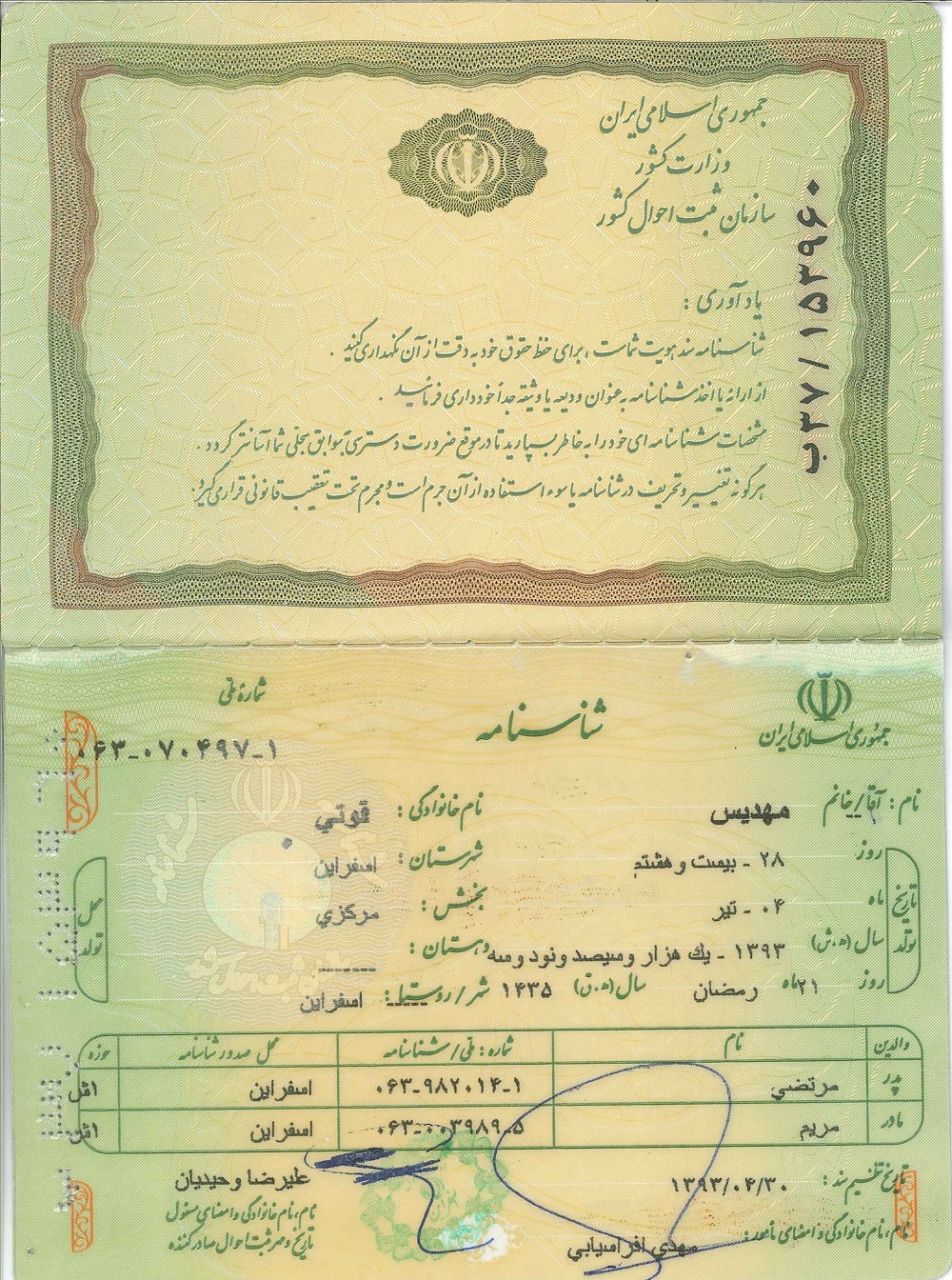 جمهوری اسلامی ایران
وزارت کشور
سازمان ثبت احوال کشور
ب۳۷/۱۵۳۹۶۰
یادآوری :
شناسنامه سند هویت شماست ، برای حفظ حقوق خود به دقت از آن نگهداری کنید .
از ارائه یا اخذ شناسنامه به عنوان ودیعه یا وثیقه جداً خودداری فرمائید .
مشخصات شناسنامه ای خود را به خاطر بسپارید تا در موقع ضرورت دسترسی به سوابق سجلی شما آسانتر گردد .
هرگونه تغییر و تحریف در شناسنامه یا سوء استفاده از آن جرم است و مجرم تحت تعقیب قانونی قرار می گیرد .
جمهوری اسلامی ایران
شناسنامه
شماره ملی
۰۶۳-۰۷۰۴۹۷-۱
نام : آقا/خانم مهدیس نام خانوادگی : قوتي
تاریخ تولد
روز ۲۸ - بیست و هشتم شهرستان : اسفراین
ماه ۰۴ - تیر بخش : مرکزي
سال (ه.ش) ۱۳۹۳ - یك هزار و سیصد و نود و سه دهستان : -------
روز ۲۱ ماه رمضان سال (ه.ق) ۱۴۳۵ شهر/روستا : اسفراین
محل تولد
والدین نام شماره : ملی/شناسنامه محل صدور شناسنامه حوزه
پدر مرتضي ۰۶۳-۹۸۲۰۱۴-۱ اسفراین
مادر مریم ۰۶۳-۰۰۳۹۸۹-۵ اسفراین
تاریخ تنظیم سند : ۱۳۹۳/۰۴/۳۰
نام ، نام خانوادگی و امضای مأمور : مهدي افراسیابي
علیرضا وحیدیان
نام ، نام خانوادگی و امضای مسئول
تاریخ و مهر ثبت احوال صادر کننده